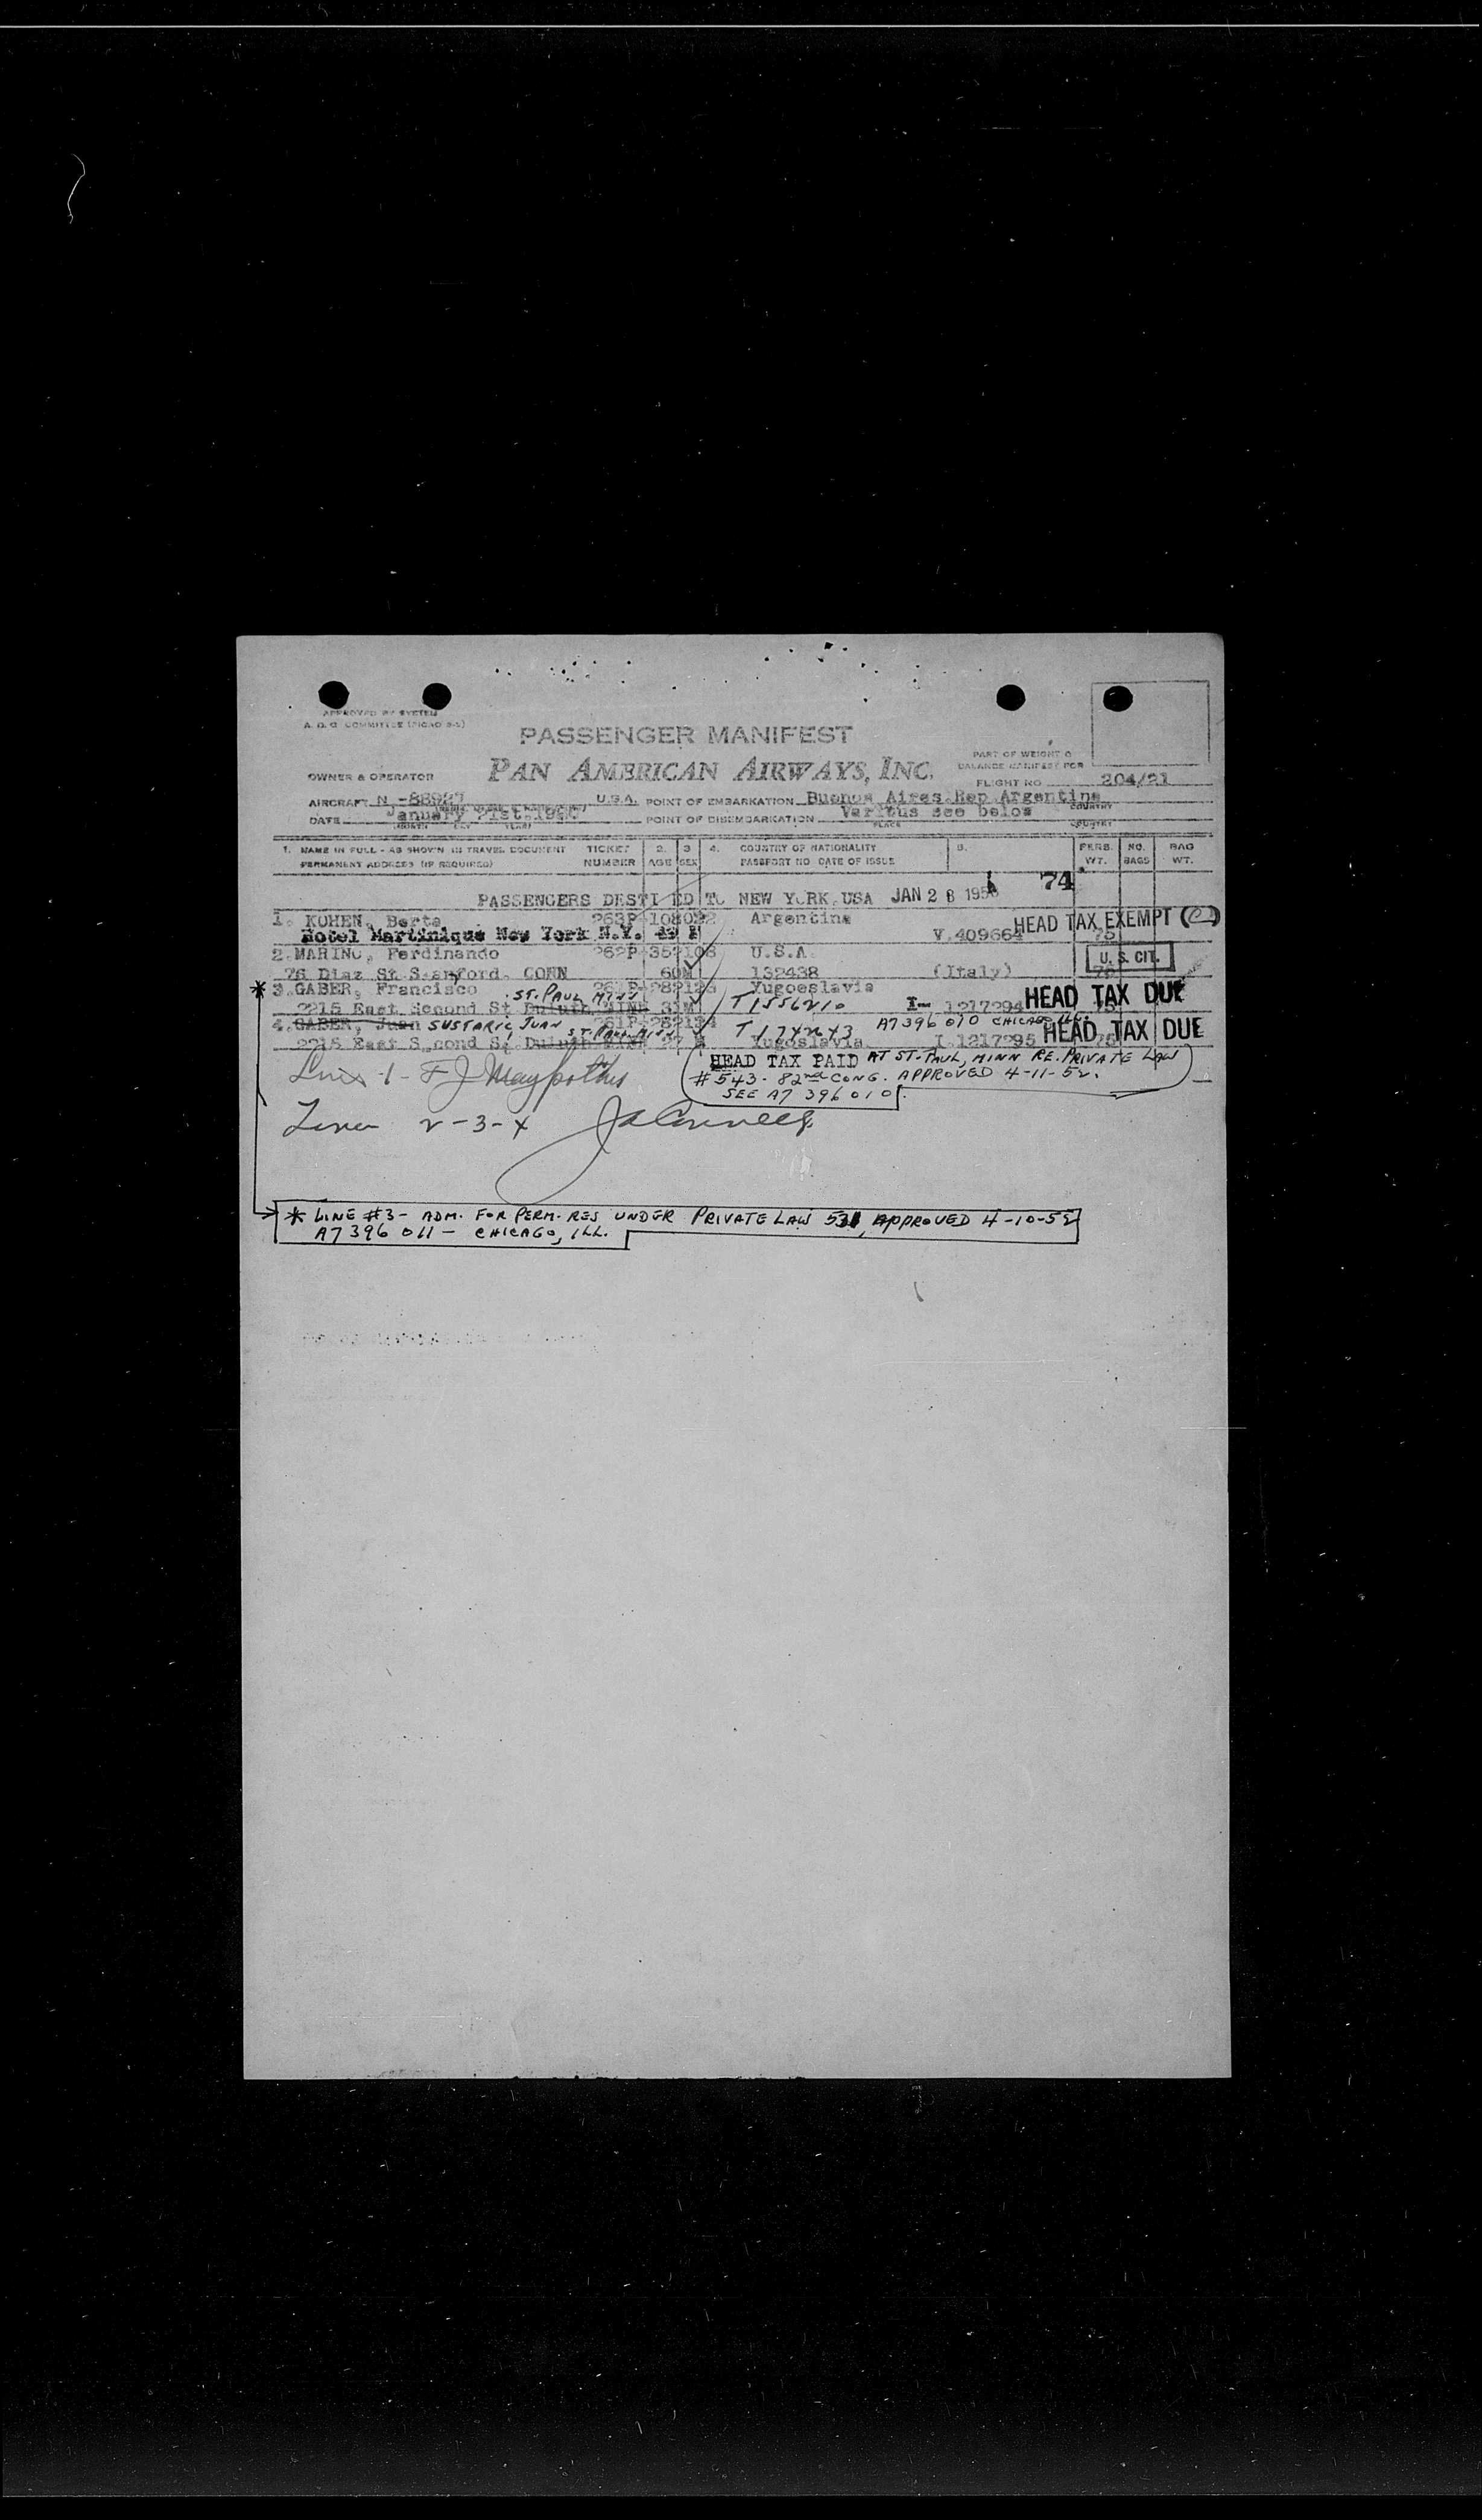 APPROVED BY SYSTEM
A. D. C. COMMITTEE
PASSENGER MANIFEST
PART OF WEIGHT &
BALANCE MANIFEST FOR
OWNER & OPERATOR PAN AMERICAN AIRWAYS, INC. FLIGHT NO 204/21
AIRCRAFT N -88927 U.S.A. POINT OF EMBARKATION Buenos Aires Rep Argentina
COUNTRY
DATE January 21st, POINT OF DISEMBARKATION Various see below
MONTH DAY YEAR PLACE COUNTRY
1. NAME IN FULL - AS SHOWN IN TRAVEL DOCUMENT TICKET 2. 3 4. COUNTRY OF NATIONALITY 5. PERS. NO. BAG
PERMANENT ADDRESS (IF REQUIRED) NUMBER AGE SEX PASSPORT NO DATE OF ISSUE WT. BAGS WT.
74
PASSENGERS DESTI ED TO NEW YORK USA JAN 28 195
1. KOHEN, Berta 263P 108092 Argentine HEAD TAX EXEMPT
Hotel Martinique New York N.Y. V.409664 75
2. MARINO, Ferdinando 262P 352108 U.S.A. U. S. CIT.
76 Diaz St S anford. CONN 60M 132438 (Italy)
* 3. GABER, Francisco 261P 282123 Yugoeslavia
ST. PAUL MINN
2215 East Second St Duluth MINN 31M T1556210 I- 1217294 HEAD TAX DUE
4. GABER, Juan SUSTARIC, JUAN 261P 282134 T1742643 A7396010 CHICAGO ILL.
ST. PAUL MINN HEAD TAX DUE
2215 East S cond St Duluth 27 M Yugoslavia I 1217295
HEAD TAX PAID AT ST. PAUL, MINN RE. PRIVATE LAW
#543. 82nd CONG. APPROVED 4-11-52.
SEE A7 396 010
Line 2-3-4
* LINE #3 - ADM. FOR PERM. RES UNDER PRIVATE LAW 531, APPROVED 4-10-52
A7396 011 - CHICAGO, ILL.